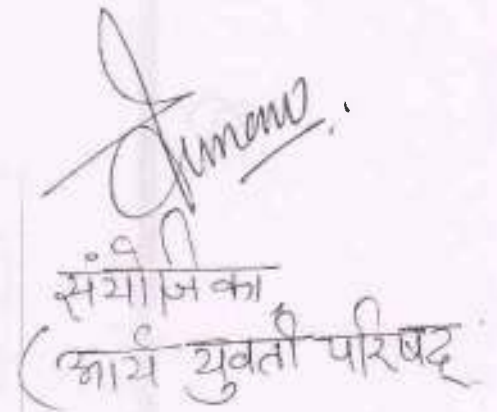 संयोजिका
(आर्य युवती परिषद्